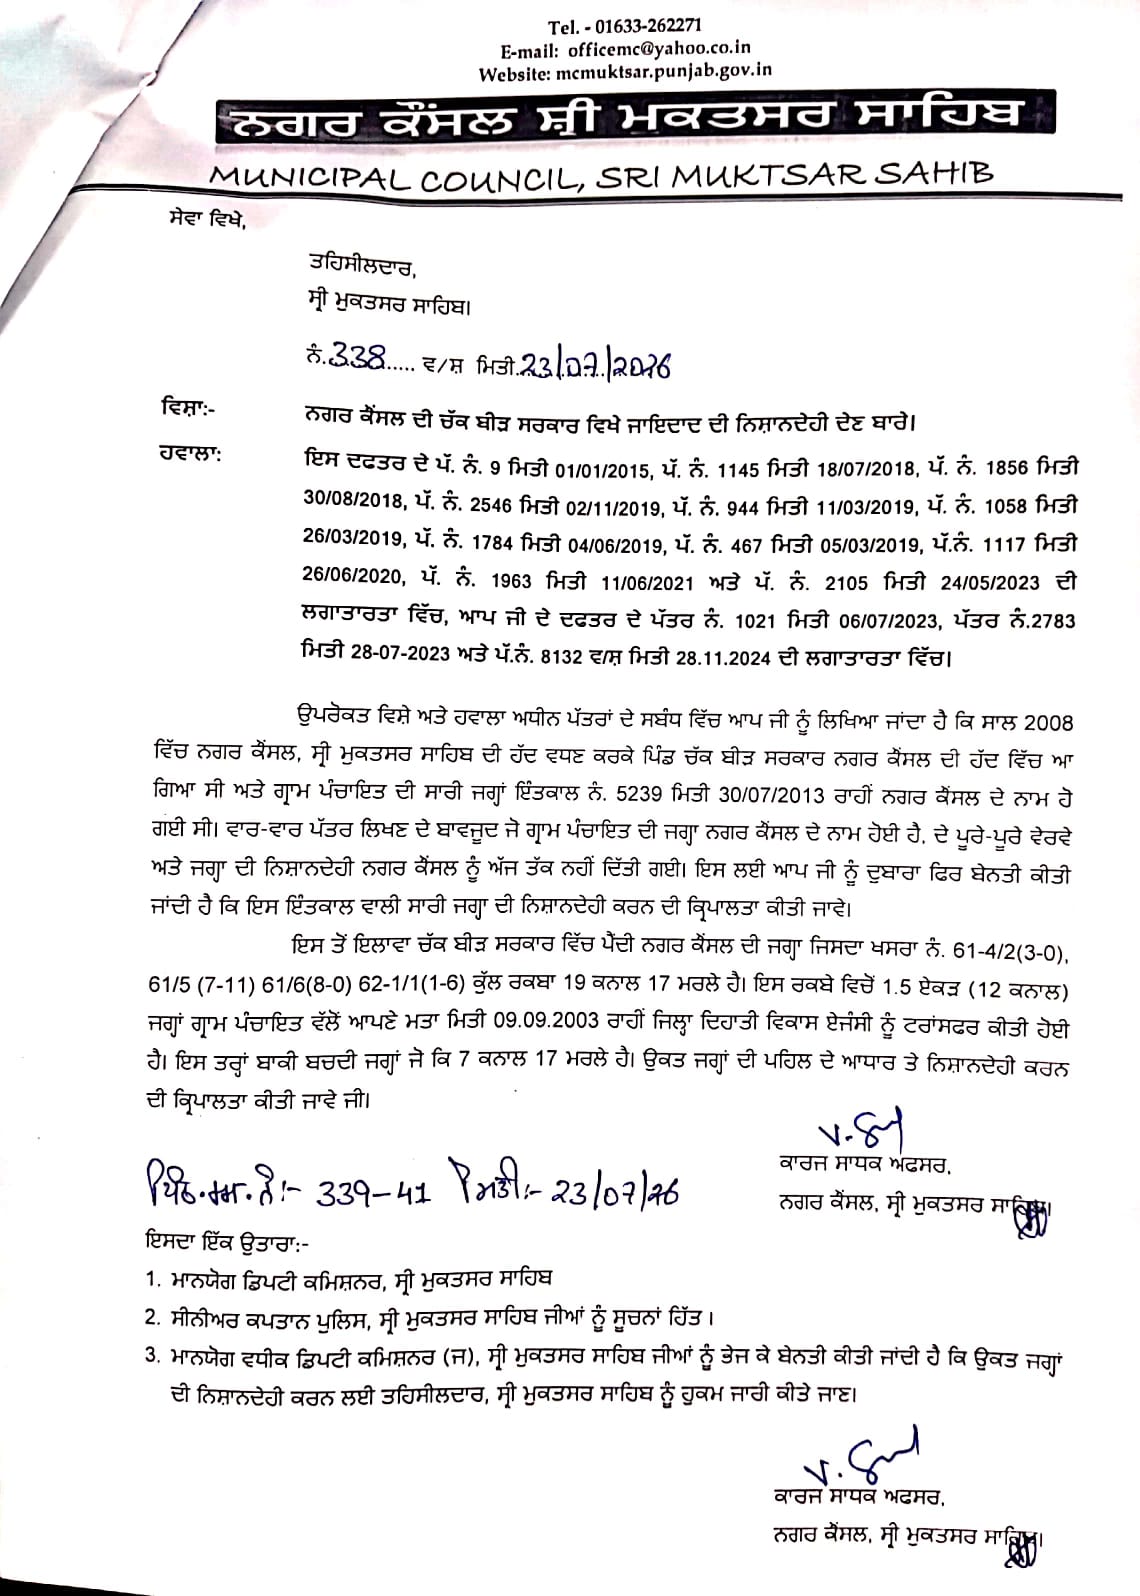 Tel. - 01633-262271
E-mail: officemc@yahoo.co.in
Website: mcmuktsar.punjab.gov.in
ਨਗਰ ਕੌਂਸਲ ਸ਼੍ਰੀ ਮੁਕਤਸਰ ਸਾਹਿਬ
MUNICIPAL COUNCIL, SRI MUKTSAR SAHIB
ਸੇਵਾ ਵਿਖੇ,
ਤਹਿਸੀਲਦਾਰ,
ਸ੍ਰੀ ਮੁਕਤਸਰ ਸਾਹਿਬ।
ਨੰ.338..... ਵ/ਸ਼ ਮਿਤੀ.23/07/2026
ਵਿਸ਼ਾ:- ਨਗਰ ਕੌਂਸਲ ਦੀ ਚੱਕ ਬੀੜ ਸਰਕਾਰ ਵਿਖੇ ਜਾਇਦਾਦ ਦੀ ਨਿਸ਼ਾਨਦੇਹੀ ਦੇਣ ਬਾਰੇ।
ਹਵਾਲਾ: ਇਸ ਦਫਤਰ ਦੇ ਪੱ. ਨੰ. 9 ਮਿਤੀ 01/01/2015, ਪੱ. ਨੰ. 1145 ਮਿਤੀ 18/07/2018, ਪੱ. ਨੰ. 1856 ਮਿਤੀ
30/08/2018, ਪੱ. ਨੰ. 2546 ਮਿਤੀ 02/11/2019, ਪੱ. ਨੰ. 944 ਮਿਤੀ 11/03/2019, ਪੱ. ਨੰ. 1058 ਮਿਤੀ
26/03/2019, ਪੱ. ਨੰ. 1784 ਮਿਤੀ 04/06/2019, ਪੱ. ਨੰ. 467 ਮਿਤੀ 05/03/2019, ਪੱ.ਨੰ. 1117 ਮਿਤੀ
26/06/2020, ਪੱ. ਨੰ. 1963 ਮਿਤੀ 11/06/2021 ਅਤੇ ਪੱ. ਨੰ. 2105 ਮਿਤੀ 24/05/2023 ਦੀ
ਲਗਾਤਾਰਤਾ ਵਿੱਚ, ਆਪ ਜੀ ਦੇ ਦਫਤਰ ਦੇ ਪੱਤਰ ਨੰ. 1021 ਮਿਤੀ 06/07/2023, ਪੱਤਰ ਨੰ.2783
ਮਿਤੀ 28-07-2023 ਅਤੇ ਪੱ.ਨੰ. 8132 ਵ/ਸ਼ ਮਿਤੀ 28.11.2024 ਦੀ ਲਗਾਤਾਰਤਾ ਵਿੱਚ।
ਉਪਰੋਕਤ ਵਿਸ਼ੇ ਅਤੇ ਹਵਾਲਾ ਅਧੀਨ ਪੱਤਰਾਂ ਦੇ ਸਬੰਧ ਵਿੱਚ ਆਪ ਜੀ ਨੂੰ ਲਿਖਿਆ ਜਾਂਦਾ ਹੈ ਕਿ ਸਾਲ 2008
ਵਿੱਚ ਨਗਰ ਕੌਂਸਲ, ਸ੍ਰੀ ਮੁਕਤਸਰ ਸਾਹਿਬ ਦੀ ਹੱਦ ਵਧਣ ਕਰਕੇ ਪਿੰਡ ਚੱਕ ਬੀੜ ਸਰਕਾਰ ਨਗਰ ਕੌਂਸਲ ਦੀ ਹੱਦ ਵਿੱਚ ਆ
ਗਿਆ ਸੀ ਅਤੇ ਗ੍ਰਾਮ ਪੰਚਾਇਤ ਦੀ ਸਾਰੀ ਜਗ੍ਹਾਂ ਇੰਤਕਾਲ ਨੰ. 5239 ਮਿਤੀ 30/07/2013 ਰਾਹੀਂ ਨਗਰ ਕੌਂਸਲ ਦੇ ਨਾਮ ਹੋ
ਗਈ ਸੀ। ਵਾਰ-ਵਾਰ ਪੱਤਰ ਲਿਖਣ ਦੇ ਬਾਵਜੂਦ ਜੋ ਗ੍ਰਾਮ ਪੰਚਾਇਤ ਦੀ ਜਗ੍ਹਾ ਨਗਰ ਕੌਂਸਲ ਦੇ ਨਾਮ ਹੋਈ ਹੈ, ਦੇ ਪੂਰੇ-ਪੂਰੇ ਵੇਰਵੇ
ਅਤੇ ਜਗ੍ਹਾ ਦੀ ਨਿਸ਼ਾਨਦੇਹੀ ਨਗਰ ਕੌਂਸਲ ਨੂੰ ਅੱਜ ਤੱਕ ਨਹੀਂ ਦਿੱਤੀ ਗਈ। ਇਸ ਲਈ ਆਪ ਜੀ ਨੂੰ ਦੁਬਾਰਾ ਫਿਰ ਬੇਨਤੀ ਕੀਤੀ
ਜਾਂਦੀ ਹੈ ਕਿ ਇਸ ਇੰਤਕਾਲ ਵਾਲੀ ਸਾਰੀ ਜਗ੍ਹਾ ਦੀ ਨਿਸ਼ਾਨਦੇਹੀ ਕਰਨ ਦੀ ਕ੍ਰਿਪਾਲਤਾ ਕੀਤੀ ਜਾਵੇ।
ਇਸ ਤੋਂ ਇਲਾਵਾ ਚੱਕ ਬੀੜ ਸਰਕਾਰ ਵਿੱਚ ਪੈਂਦੀ ਨਗਰ ਕੌਂਸਲ ਦੀ ਜਗ੍ਹਾ ਜਿਸਦਾ ਖਸਰਾ ਨੰ. 61-4/2(3-0),
61/5 (7-11) 61/6(8-0) 62-1/1(1-6) ਕੁੱਲ ਰਕਬਾ 19 ਕਨਾਲ 17 ਮਰਲੇ ਹੈ। ਇਸ ਰਕਬੇ ਵਿਚੋਂ 1.5 ਏਕੜ (12 ਕਨਾਲ)
ਜਗ੍ਹਾਂ ਗ੍ਰਾਮ ਪੰਚਾਇਤ ਵੱਲੋਂ ਆਪਣੇ ਮਤਾ ਮਿਤੀ 09.09.2003 ਰਾਹੀਂ ਜਿਲ੍ਹਾ ਦਿਹਾਤੀ ਵਿਕਾਸ ਏਜੰਸੀ ਨੂੰ ਟਰਾਂਸਫਰ ਕੀਤੀ ਹੋਈ
ਹੈ। ਇਸ ਤਰ੍ਹਾਂ ਬਾਕੀ ਬਚਦੀ ਜਗ੍ਹਾਂ ਜੋ ਕਿ 7 ਕਨਾਲ 17 ਮਰਲੇ ਹੈ। ਉਕਤ ਜਗ੍ਹਾਂ ਦੀ ਪਹਿਲ ਦੇ ਆਧਾਰ ਤੇ ਨਿਸ਼ਾਨਦੇਹੀ ਕਰਨ
ਦੀ ਕ੍ਰਿਪਾਲਤਾ ਕੀਤੀ ਜਾਵੇ ਜੀ।
ਕਾਰਜ ਸਾਧਕ ਅਫਸਰ,
ਨਗਰ ਕੌਂਸਲ, ਸ੍ਰੀ ਮੁਕਤਸਰ ਸਾਹਿਬ।
ਪਿੱਠ.ਅੰਕ.ਨੰ:- 339-41 ਮਿਤੀ:- 23/07/26
ਇਸਦਾ ਇੱਕ ਉਤਾਰਾ:-
1. ਮਾਨਯੋਗ ਡਿਪਟੀ ਕਮਿਸ਼ਨਰ, ਸ੍ਰੀ ਮੁਕਤਸਰ ਸਾਹਿਬ
2. ਸੀਨੀਅਰ ਕਪਤਾਨ ਪੁਲਿਸ, ਸ੍ਰੀ ਮੁਕਤਸਰ ਸਾਹਿਬ ਜੀਆਂ ਨੂੰ ਸੂਚਨਾਂ ਹਿੱਤ ।
3. ਮਾਨਯੋਗ ਵਧੀਕ ਡਿਪਟੀ ਕਮਿਸ਼ਨਰ (ਜ), ਸ੍ਰੀ ਮੁਕਤਸਰ ਸਾਹਿਬ ਜੀਆਂ ਨੂੰ ਭੇਜ ਕੇ ਬੇਨਤੀ ਕੀਤੀ ਜਾਂਦੀ ਹੈ ਕਿ ਉਕਤ ਜਗ੍ਹਾਂ
ਦੀ ਨਿਸ਼ਾਨਦੇਹੀ ਕਰਨ ਲਈ ਤਹਿਸੀਲਦਾਰ, ਸ੍ਰੀ ਮੁਕਤਸਰ ਸਾਹਿਬ ਨੂੰ ਹੁਕਮ ਜਾਰੀ ਕੀਤੇ ਜਾਣ।
ਕਾਰਜ ਸਾਧਕ ਅਫਸਰ,
ਨਗਰ ਕੌਂਸਲ, ਸ੍ਰੀ ਮੁਕਤਸਰ ਸਾਹਿਬ।